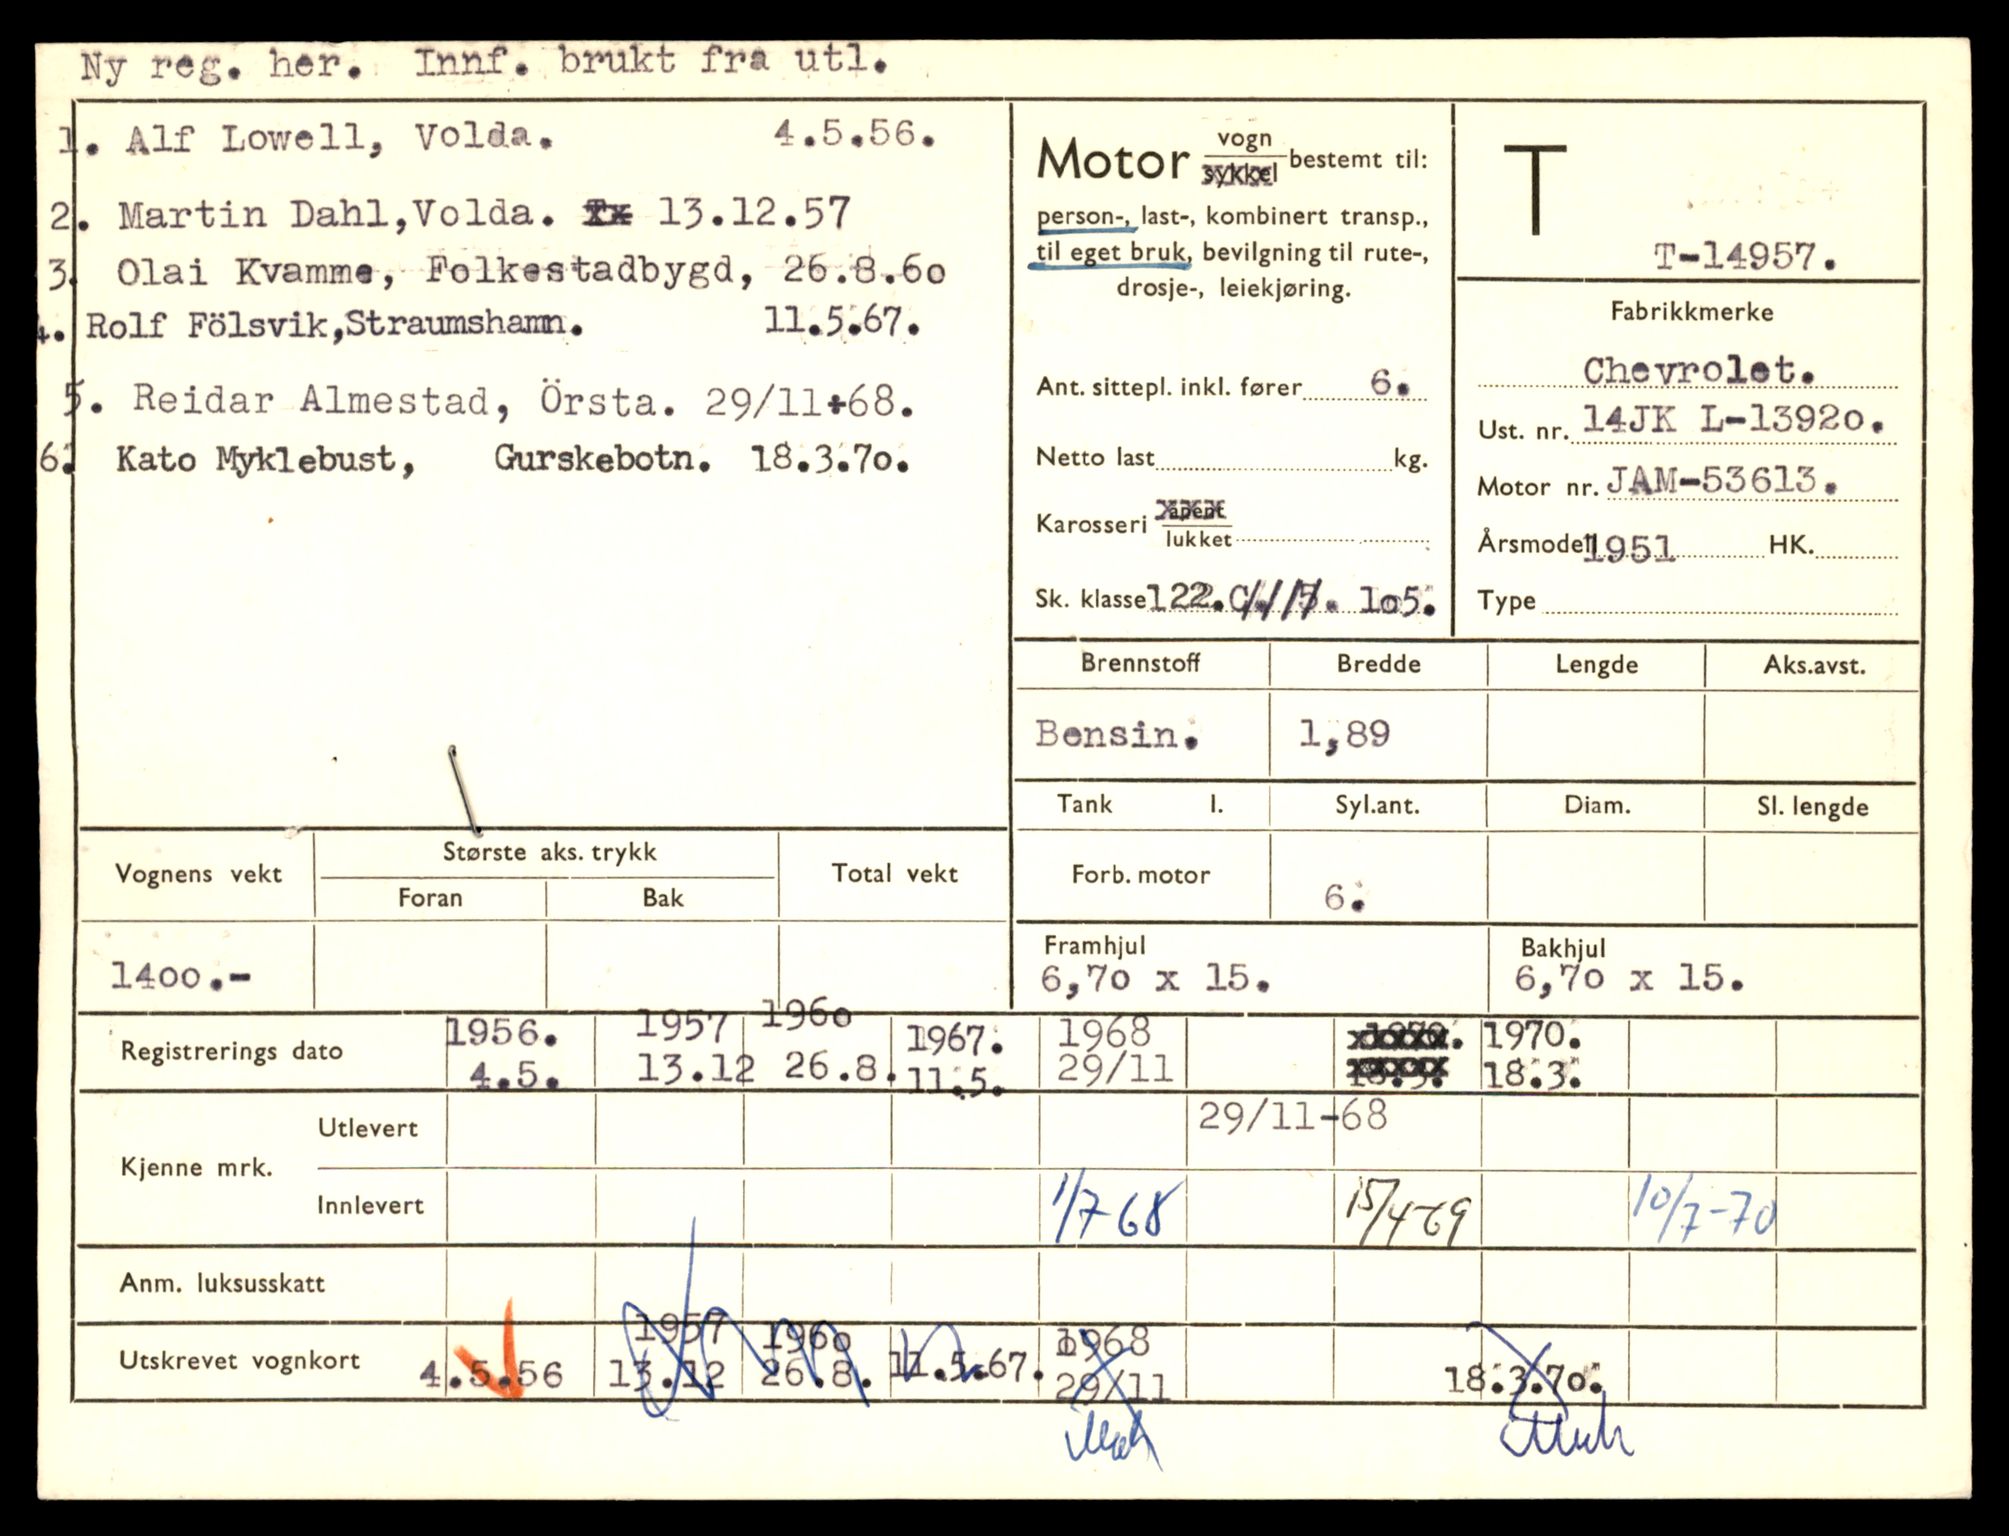 Ny reg. her. Innf. brukt fra utl.
1. Alf Lowell, Volda. 4.5.56.
2. Martin Dahl,Volda. 13.12.57
3. Olai Kvamme, Folkestadbygd, 26.8.6o
4. Rolf Fölsvik,Straumshamn. 11.5.67.
5. Reidar Almestad, Örsta. 29/11+68.
6. Kato Myklebust, Gurskebotn. 18.3.7o.
Motor vogn sykkel bestemt til:
person-, last-, kombinert transp.,
til eget bruk, bevilgning til rute-,
drosje-, leiekjøring.
Ant. sittepl. inkl. fører 6.
Netto last kg.
Karosseri åpent lukket
Sk. klasse 122. 1o5.
T
T-14957.
Fabrikkmerke
Chevrolet.
Ust. nr. 14JK L-1392o.
Motor nr. JAM-53613.
Årsmodell 1951 HK.
Type
Brennstoff Bredde Lengde Aks.avst.
Bensin. 1,89
Tank l. Syl.ant. Diam. Sl. lengde
Forb. motor 6.
Framhjul Bakhjul
6,7o x 15. 6,7o x 15.
Vognens vekt Største aks. trykk Total vekt
Foran Bak
14oo.-
Registrerings dato
1956. 1957 196o 1967. 1968 1970. 1970.
4.5. 13.12 26.8. 11.5. 29/11 18.3. 18.3.
Kjenne mrk.
Utlevert 29/11-68
Innlevert 1/7-68 15/4-69 10/7-70
Anm. luksusskatt
Utskrevet vognkort
1957 196o 1968
4.5.56 13.12 26.8. 11.5.67. 29/11 18.3.7o.